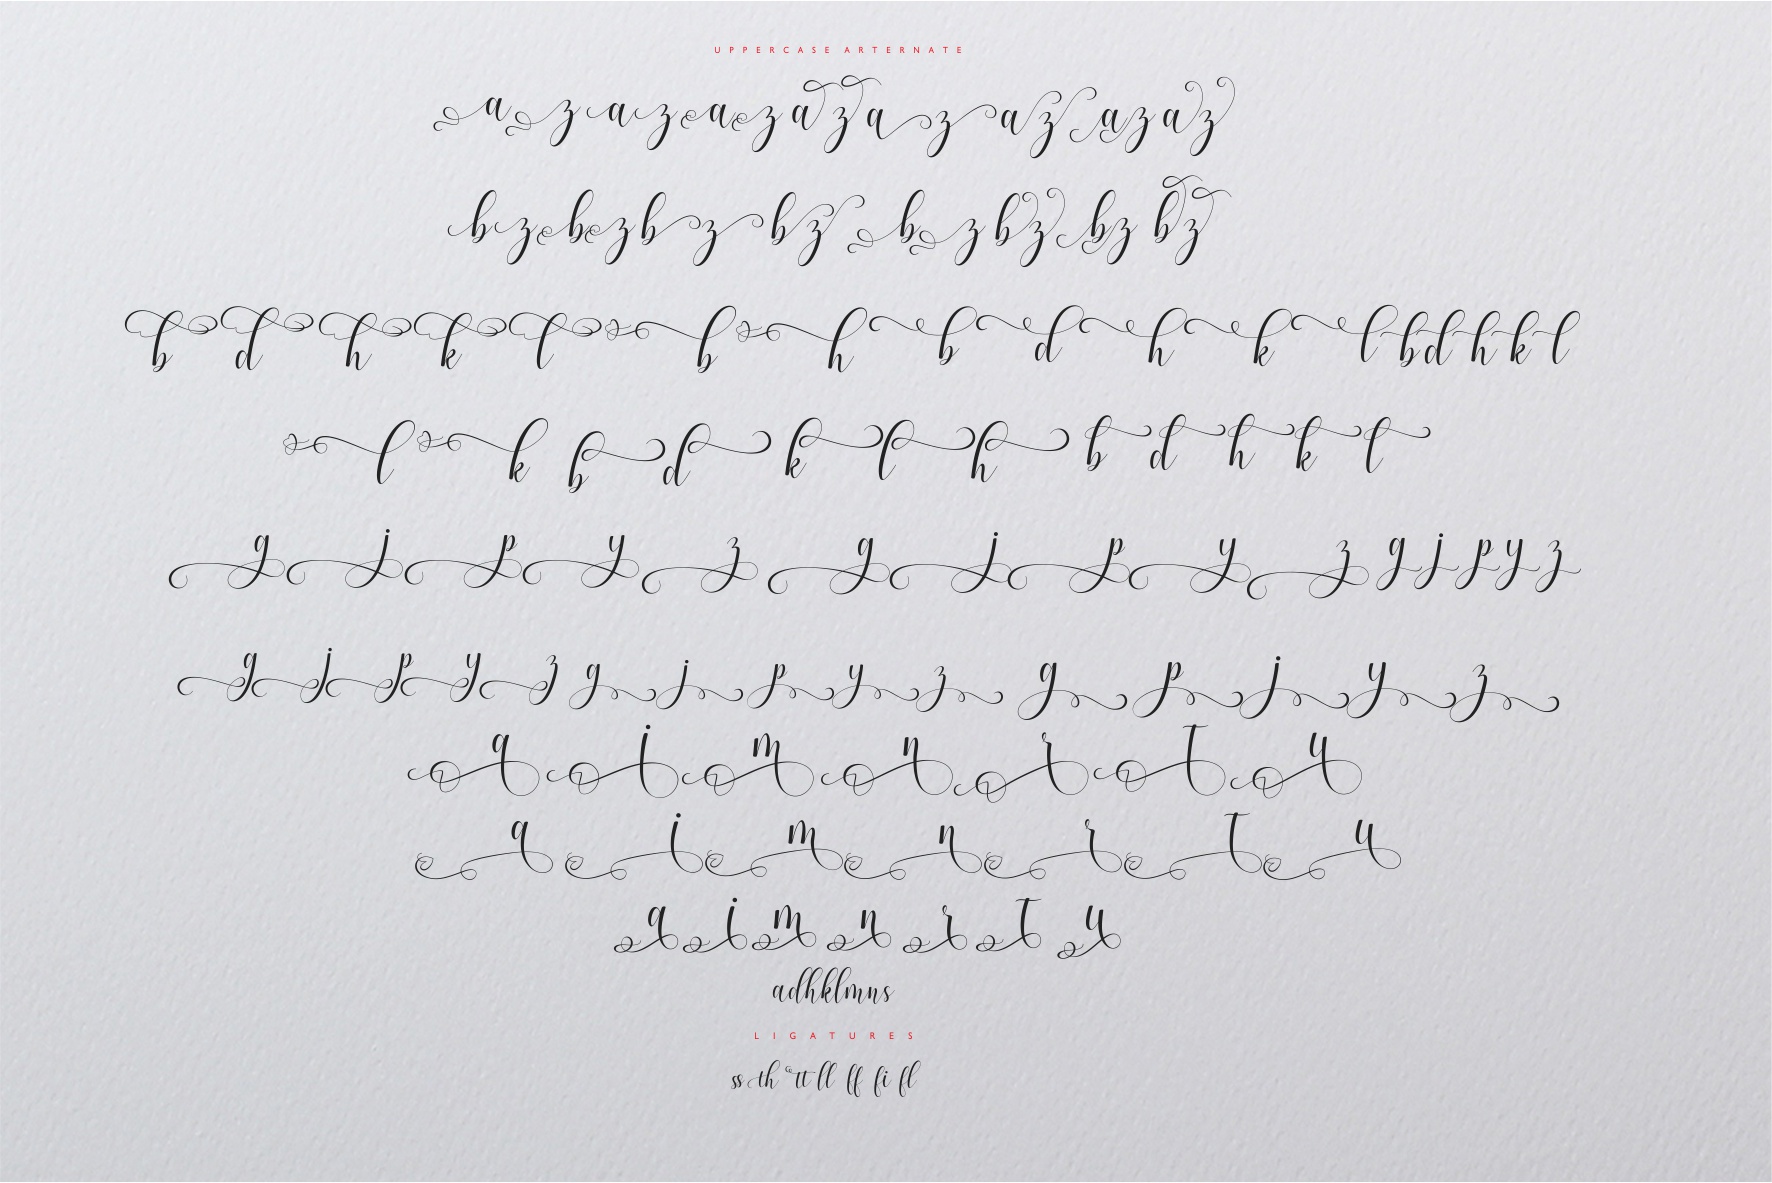 UPPERCASE ARTERNATE
a z a z a z a z a z a z a z a z
b z b z b z b z b z b z b z b z
b d h k l b h b d h k l b d h k l
l k b d k l h b d h k l
g j p y z g j p y z g j p y z
g j p y z g j p y z g p j y z
q i m n r t u
q i m n r t u
a i m n r t u
adhklmns
LIGATURES
ss th tt ll ff fi fl